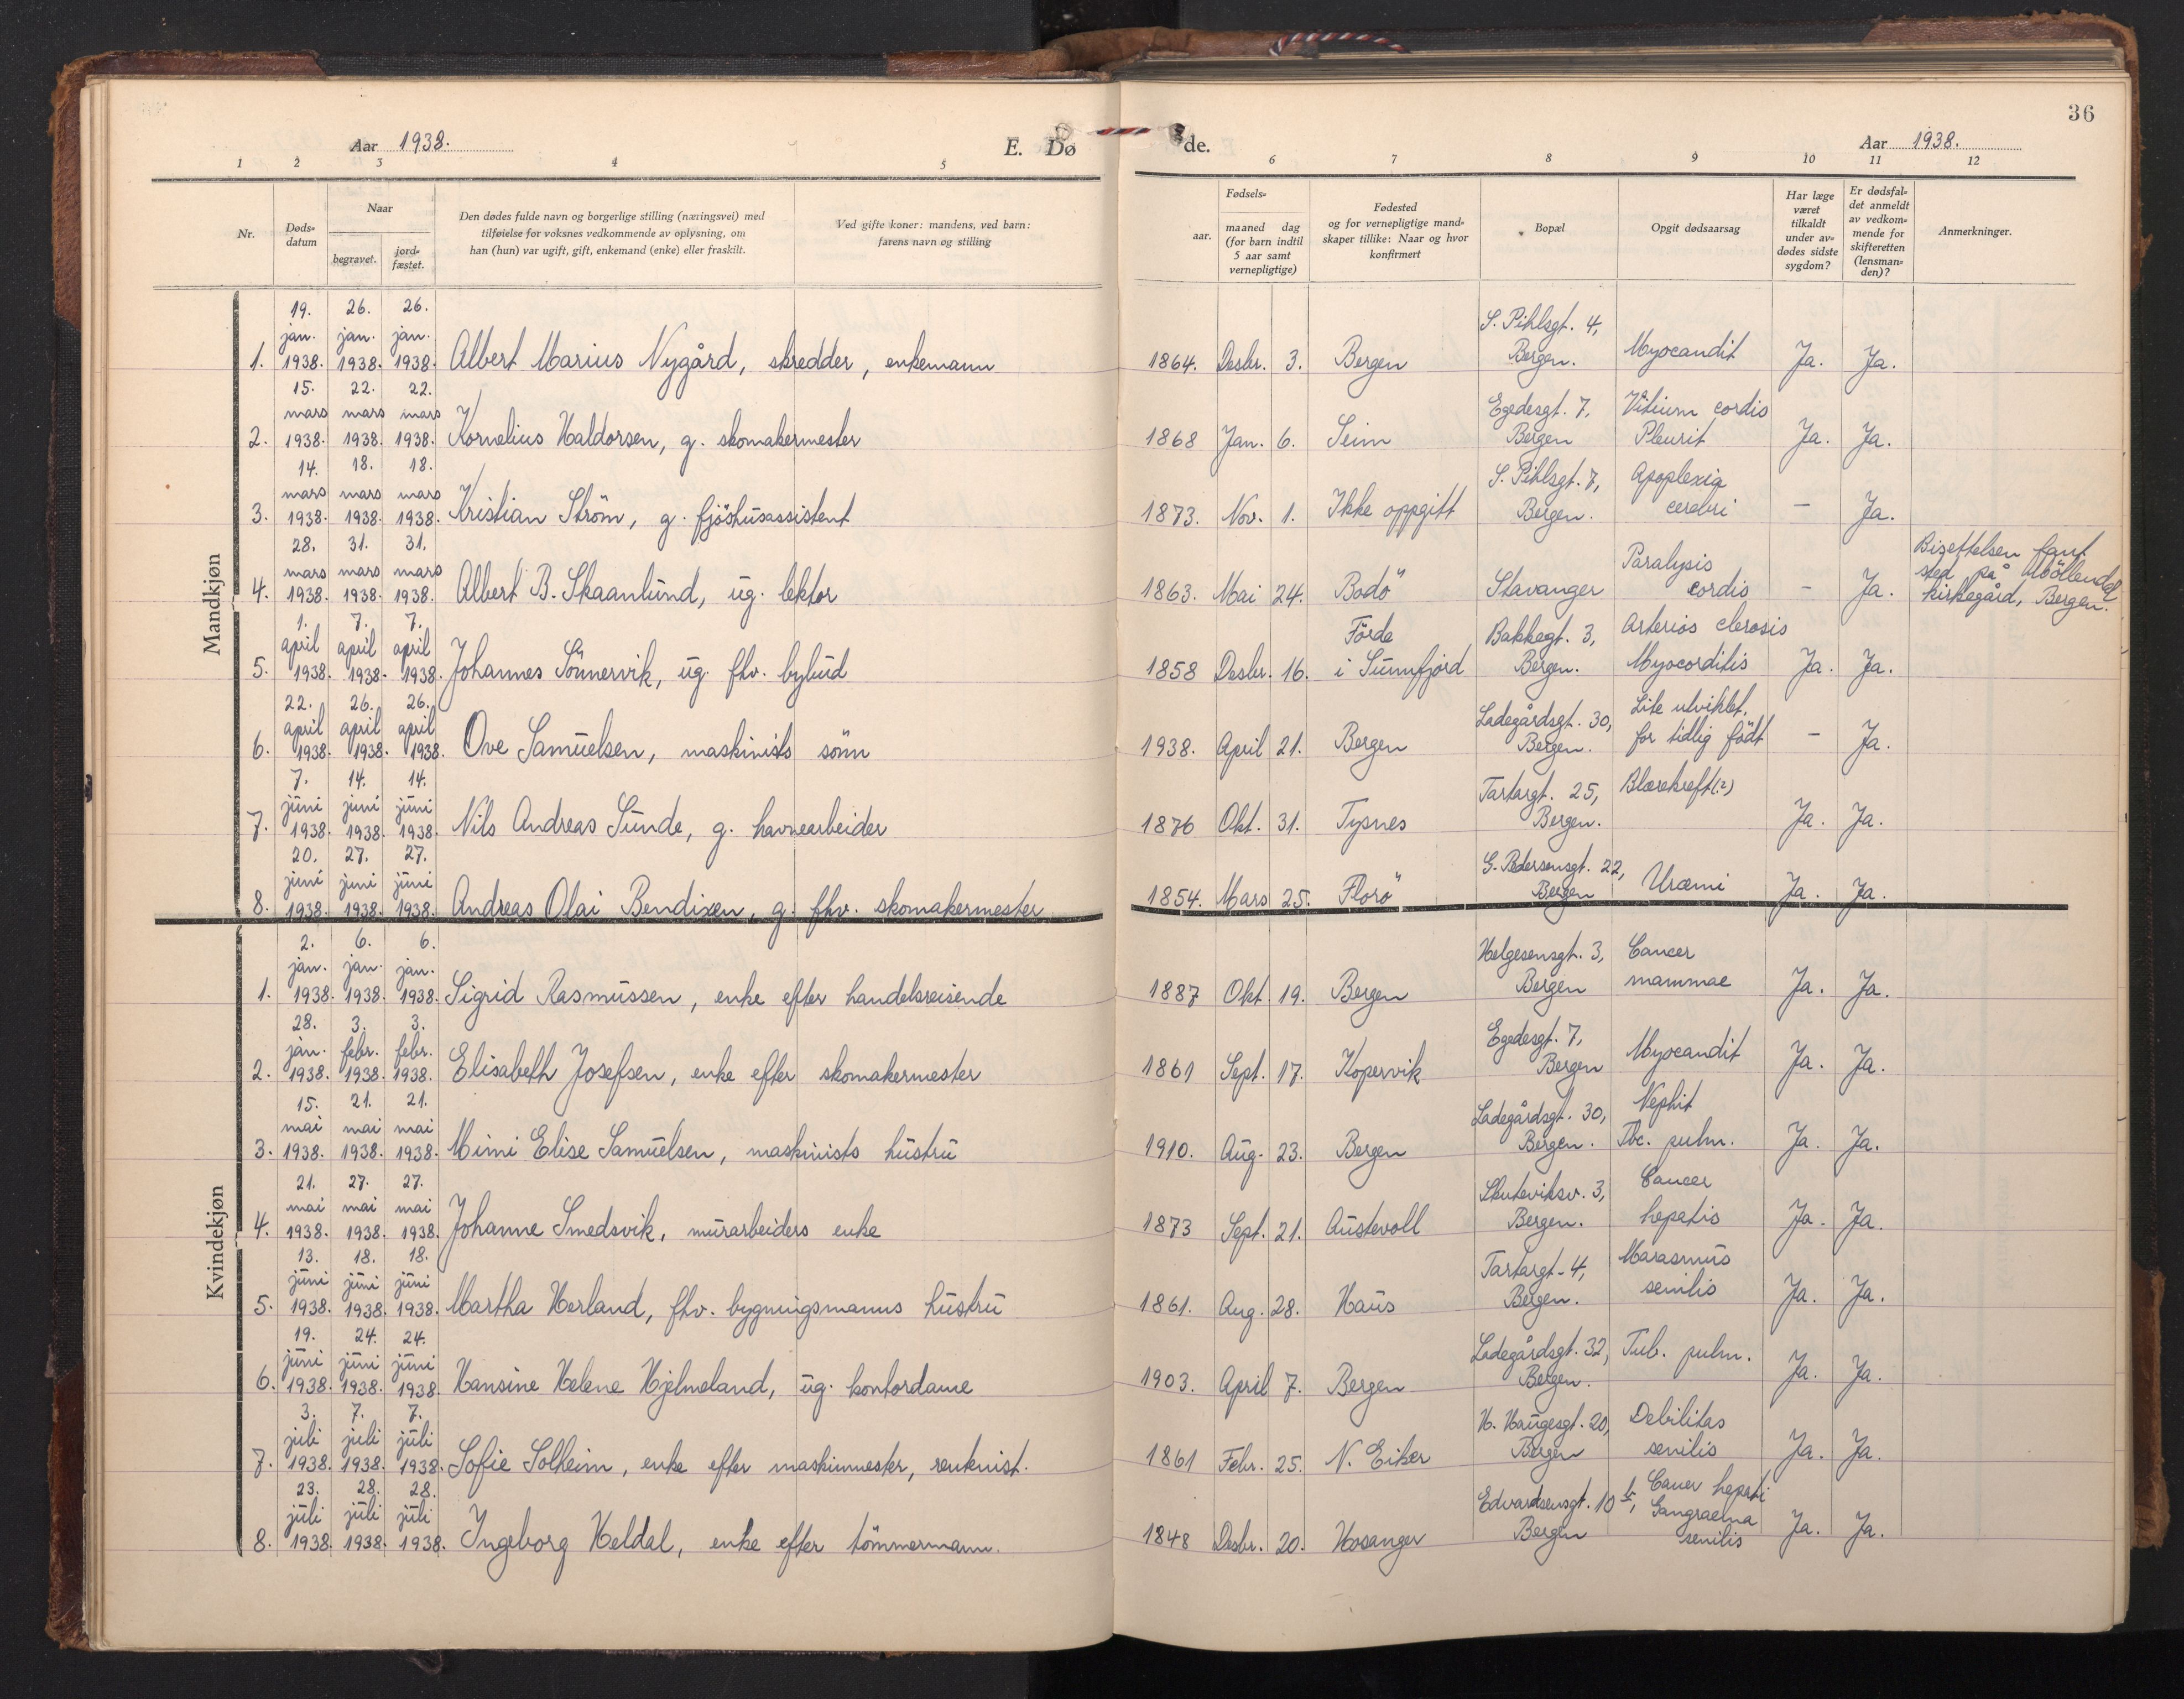 36
Aar 1938. E. Dø de. Aar 1938.
1 2 3 4 5 6 7 8 9 10 11 12
Nr.
Døds-
datum
Naar
begravet.
jord-
fæstet.
Den dødes fulde navn og borgerlige stilling (næringsvei) med
tilføielse for voksnes vedkommende av oplysning, om
han (hun) var ugift, gift, enkemand (enke) eller fraskilt.
Ved gifte koner: mandens, ved barn:
farens navn og stilling
Fødsels-
aar.
maaned dag
(for barn indtil
5 aar samt
vernepligtige)
Fødested
og for vernepligtige mand-
skaper tillike: Naar og hvor
konfirmert
Bopæl
Opgit dødsaarsag
Har læge
været
tilkaldt
under av-
dødes sidste
sygdom?
Er dødsfal-
det anmeldt
av vedkom-
mende for
skifteretten
(lensman-
den)?
Anmerkninger.
Mandkjøn
19. 26. 26. S. Pihlsgt. 4,
jan. jan. jan.
1. 1938. 1938. 1938. Albert Marius Nygård, skredder, enkemann 1864. Desbr. 3. Bergen Bergen. Myocandit Ja. Ja.
15. 22. 22.
mars mars mars Egedesgt. 7, Vitium cordis
2. 1938. 1938. 1938. Kornelius Haldorsen, g. skomakermester 1868 Jan. 6. Seim Bergen Pleurit Ja. Ja.
14. 18. 18.
mars mars mars S. Pihlsgt. 7, Apoplexia
3. 1938. 1938. 1938. Kristian Ström, g. fjöshusassistent 1873. Nov. 1. Ikke oppgitt Bergen. cerebri - Ja.
28. 31. 31. Paralysis Bisettelsen fant
mars mars mars sted på Möllendal
4. 1938. 1938. 1938. Albert B. Skaanlund, ug. lektor 1863. Mai 24. Bodö Stavanger cordis - Ja. kirkegård, Bergen.
1. 7. 7.
april april april Förde Bakkegt. 3, Arterios clerosis
5. 1938. 1938. 1938. Johannes Sönnervik, ug. fhv. bybud 1858 Desbr. 16. i Sunnfjord Bergen. Myocorditis Ja. Ja.
22. 26. 26.
april april april Ladegårdsgt. 30, Lite utviklet,
6. 1938. 1938. 1938. Ove Samuelsen, maskinists sönn 1938. April 21. Bergen Bergen. for tidlig födt - Ja.
7. 14. 14.
juni juni juni Tartargt. 25, Blærekreft(?)
7. 1938. 1938. 1938. Nils Andreas Sunde, g. havnearbeider 1876 Okt. 31. Tysnes Bergen. Ja. Ja.
20. 27. 27.
juni juni juni G. Pedersensgt. 22,
8. 1938. 1938. 1938. Andreas Olai Bendixen, g. fhv. skomakermester 1854. Mars 25. Florö Bergen Uræmi Ja. Ja.
Kvindekjøn
2. 6. 6.
jan. jan. jan. Helgesensgt. 3, Cancer
1. 1938. 1938. 1938. Sigrid Rasmussen, enke efter handelsreisende 1887 Okt 19. Bergen Bergen mammae Ja. Ja.
28. 3. 3.
jan. febr. febr. Egedesgt. 7,
2. 1938. 1938. 1938. Elisabeth Josefsen, enke efter skomakermester 1861 Sept. 17. Kopervik Bergen Myocandit Ja. Ja.
15. 21. 21.
mai mai mai Ladegårdsgt. 30, Nephit
3. 1938. 1938. 1938. Mimi Elise Samuelsen, maskinists hustru 1910. Aug. 23. Bergen Bergen. Tbc. pulm. Ja. Ja.
21. 27. 27.
mai mai mai Skuteviksv. 3, Cancer
4. 1938. 1938. 1938. Johanne Smedsvik, murarbeiders enke 1873 Sept. 21. Austevoll Bergen. hepatis Ja. Ja.
13. 18. 18.
juni juni juni Tartargt. 4, Marasmus
5. 1938. 1938. 1938. Martha Herland, fhv. bygningsmanns hustru 1861. Aug. 28. Haus Bergen. senilis Ja. Ja.
19. 24. 24.
juni juni juni Ladegårdsgt. 32, Tub. pulm.
6. 1938. 1938. 1938 Hansine Helene Hjelmeland, ug. kontordame 1903. April 7. Bergen Bergen. Ja. Ja.
3. 7. 7.
juli juli juli H. Haugesgt. 20, Debilitas
7. 1938. 1938. 1938. Sofie Solheim, enke efter maskinmester, 1861 Febr. 25. N. Eiker Bergen senilis Ja. Ja.
23. 28. 28. Cancer hepati
juli juli juli Edvardsensgt. 10 b, Gangraena
8. 1938. 1938. 1938. Ingeborg Heldal, enke efter tömmermann. 1848 Desbr. 20. Hosanger Bergen senilis Ja. Ja.